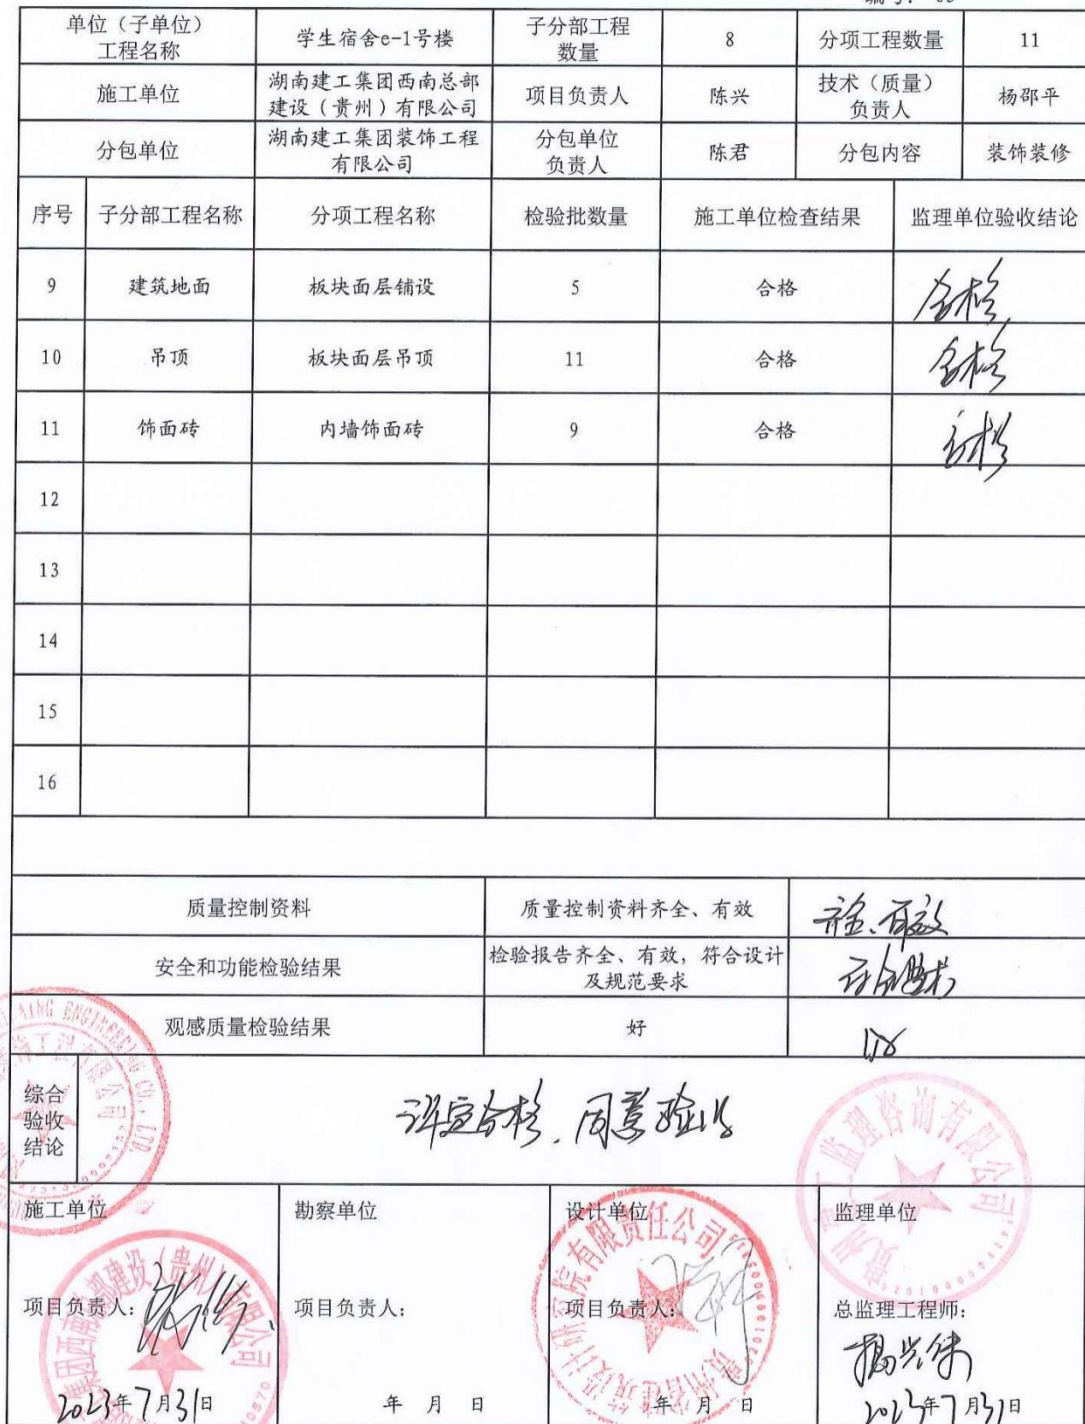 单位（子单位）
工程名称
学生宿舍e-1号楼
子分部工程
数量
8
分项工程数量
11
施工单位
湖南建工集团西南总部
建设（贵州）有限公司
项目负责人
陈兴
技术（质量）
负责人
杨邵平
分包单位
湖南建工集团装饰工程
有限公司
分包单位
负责人
陈君
分包内容
装饰装修
序号 子分部工程名称 分项工程名称 检验批数量 施工单位检查结果 监理单位验收结论
9 建筑地面 板块面层铺设 5 合格 合格
10 吊顶 板块面层吊顶 11 合格 合格
11 饰面砖 内墙饰面砖 9 合格 合格
12
13
14
15
16
质量控制资料 质量控制资料齐全、有效 齐全、有效
安全和功能检验结果
检验报告齐全、有效，符合设计
及规范要求
符合要求
观感质量检验结果 好 好
综合
验收
结论
评定合格，同意验收
施工单位 勘察单位 设计单位 监理单位
项目负责人： 项目负责人： 项目负责人： 总监理工程师：
2023年7月31日 年 月 日 年 月 日 2023年7月31日